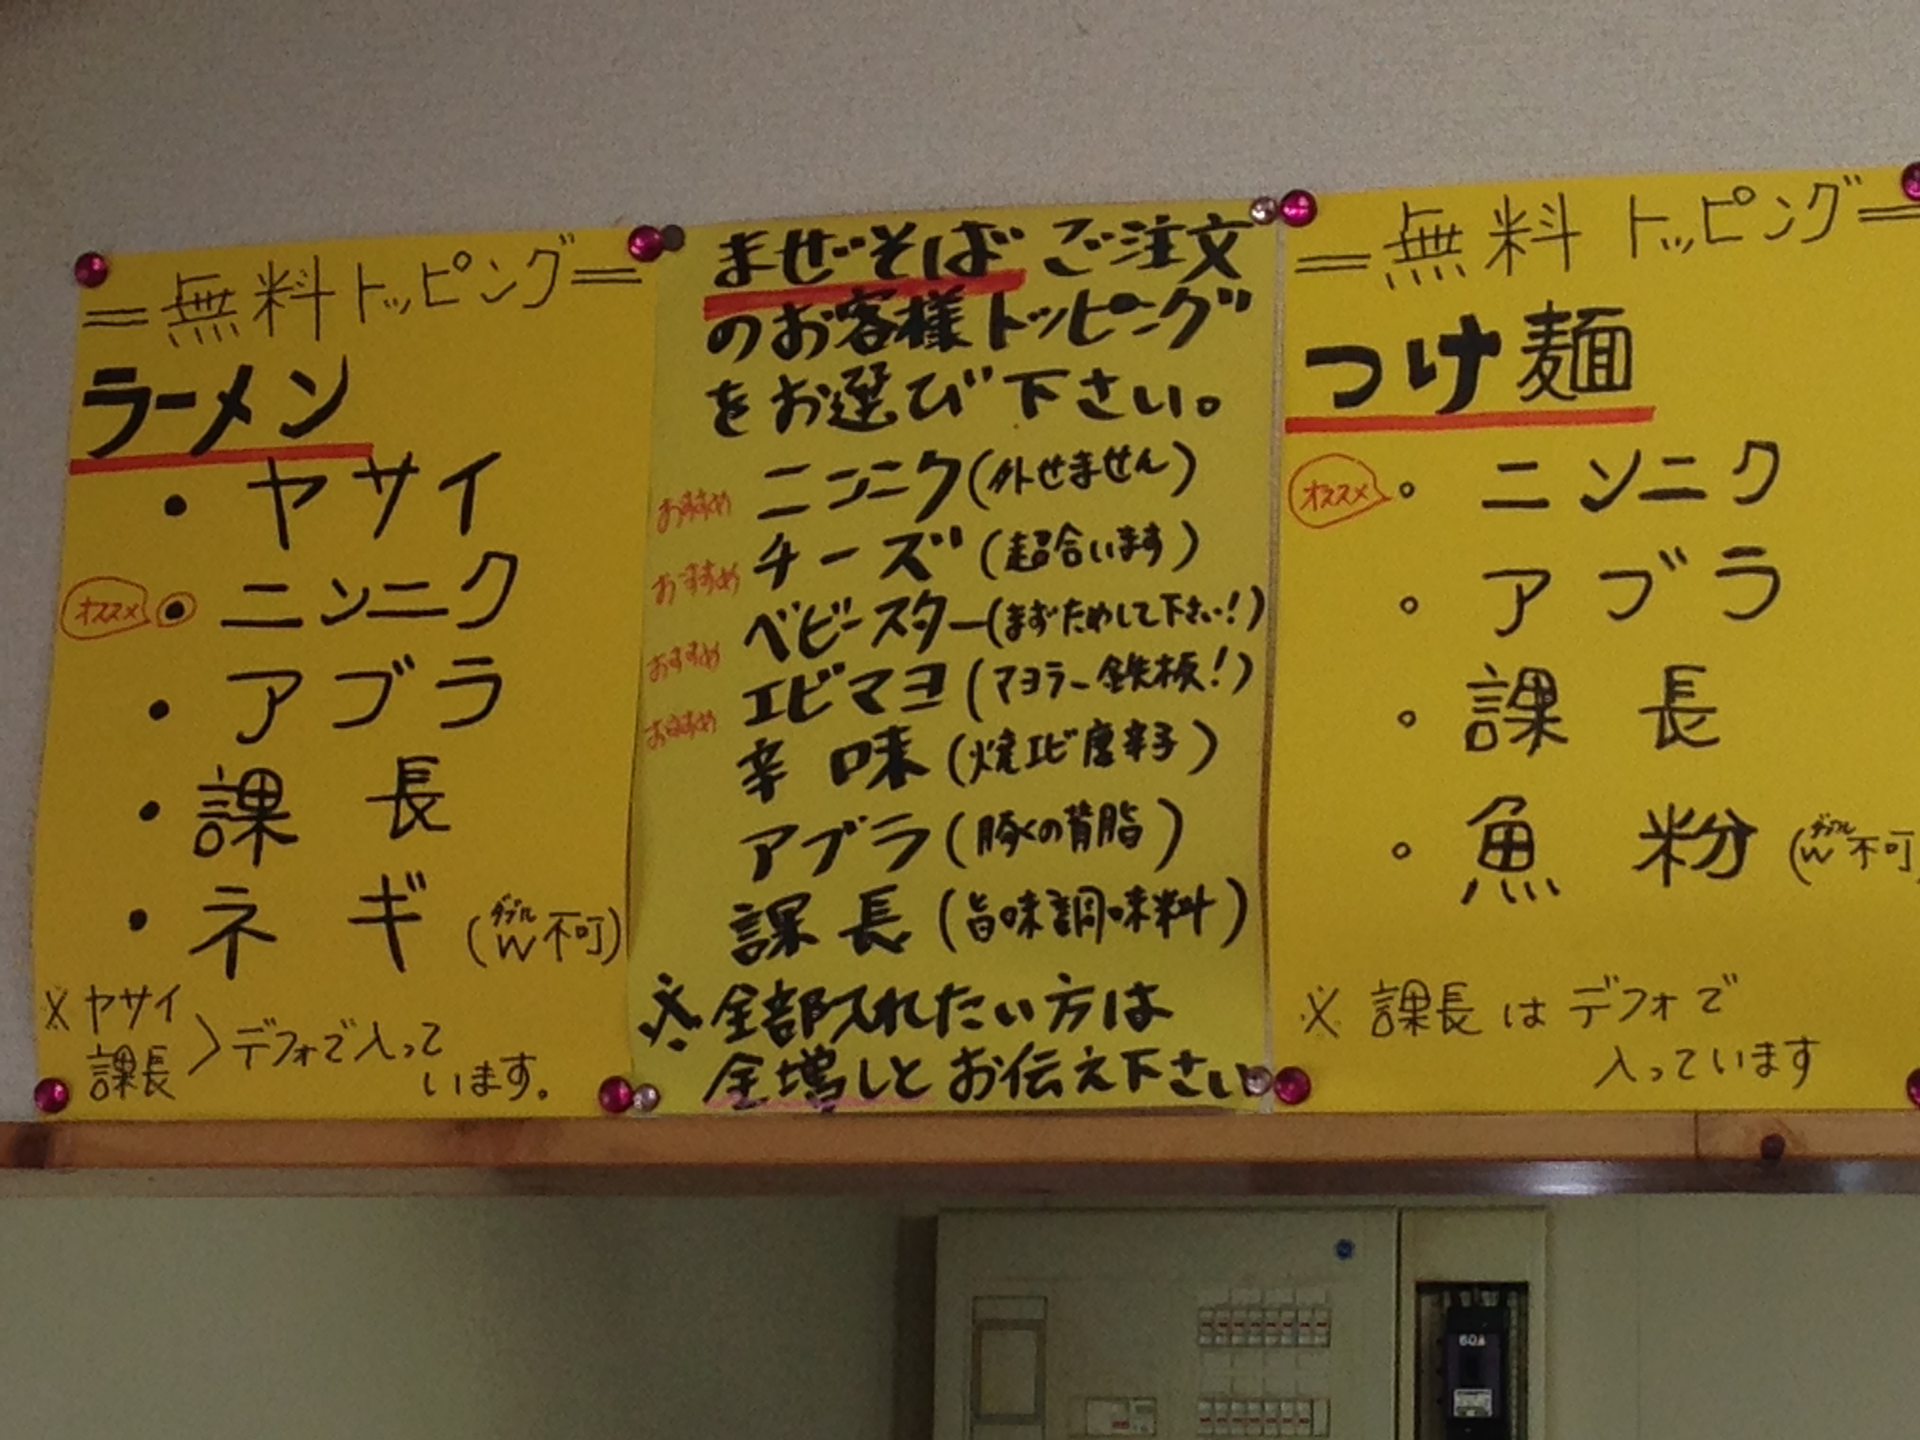 =無料トッピング=
ラーメン
・ヤサイ
オススメ ・ニンニク
・アブラ
・課長
・ネギ(W不可)
ダブル
※ヤサイ
課長 〉デフォで入って
います。
まぜそばご注文
のお客様トッピング
をお選び下さい。
おすすめ ニンニク(外せません)
おすすめ チーズ(超合います)
おすすめ ベビースター(まずためして下さい!)
おすすめ エビマヨ(マヨラー鉄板!)
辛味(焼エビ唐辛子)
アブラ(豚の背脂)
課長(旨味調味料)
※全部入れたい方は
全増しとお伝え下さい
=無料トッピング=
つけ麺
オススメ 。ニンニク
。アブラ
。課長
。魚粉(W不可)
ダブル
※課長はデフォで
入っています
60A